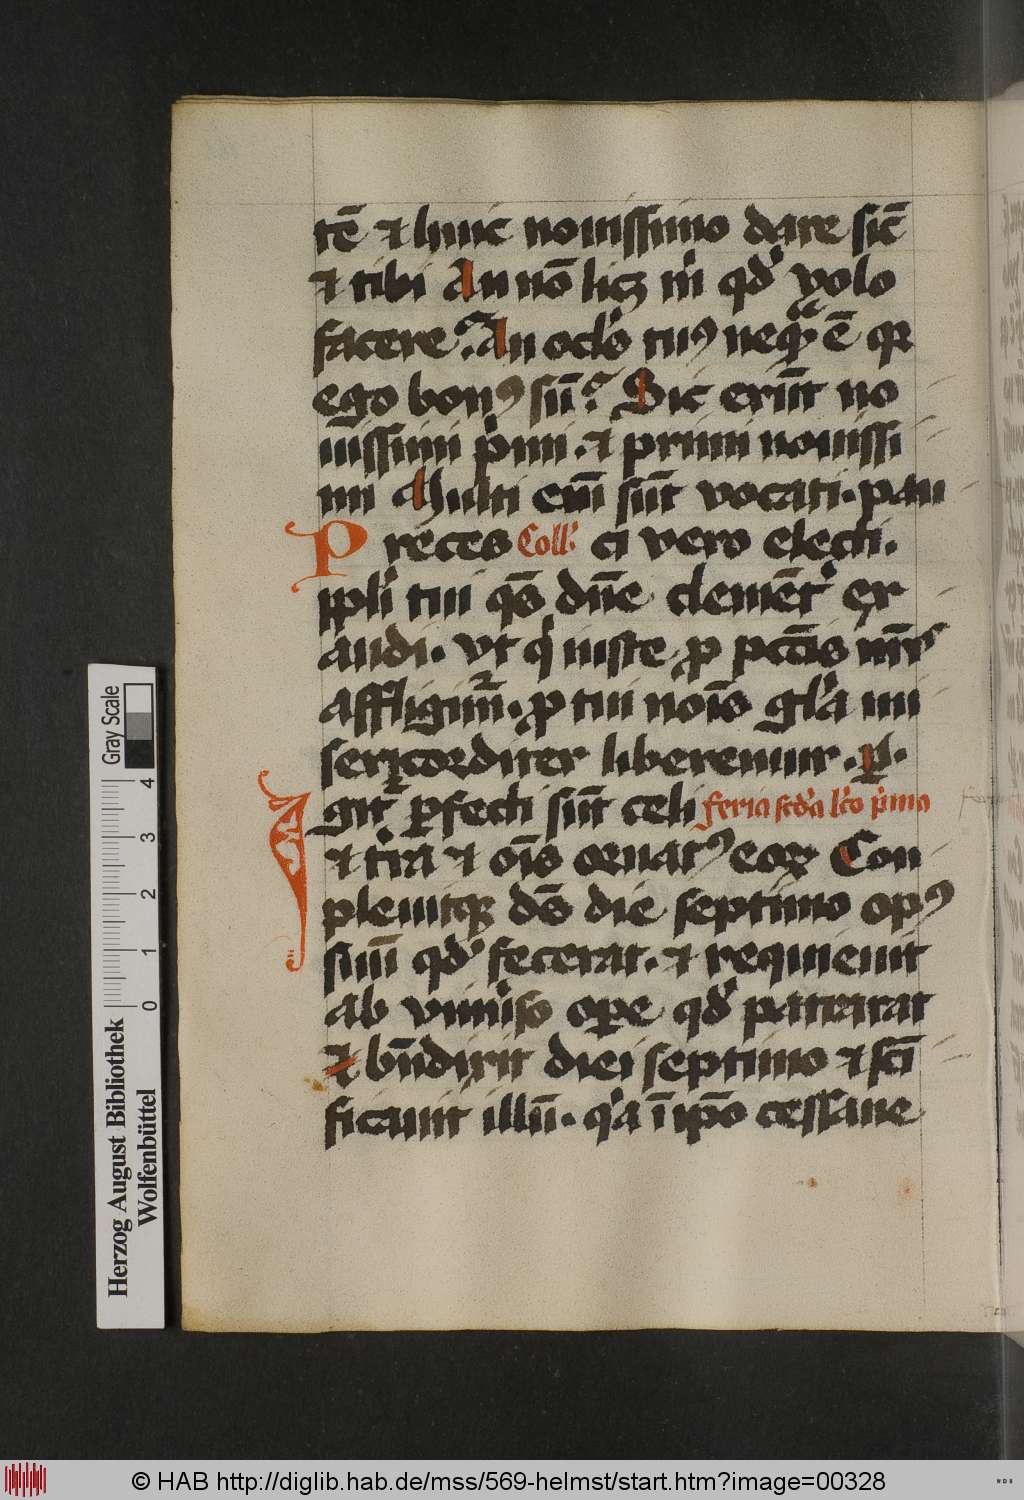 tē et huic nouissimo dare sic̄
et tibi An nō licꝫ m̄ qd' volo
facere? An oclo's tuꝰ nequa' ē qꝛ
ego bonꝰ sū? Sic erūt no
uissimi p'mi. et primi nouissi
mi Multi eni sūt vocati. pau
Preces Coll' ci vero electi.
ppli' tui qs̄ dn̄e clemēt' ex
audi. vt q' iuste ꝓ pcc̄is nr̄is
affligim̄. ꝓ tui nois̄ gl'a mi
sericorditer liberemur. ꝑ.
Igit' ꝑfecti sūt celi feria scd'a lc̄o p'ma
et t'ra et ois̄ ornatꝰ eoꝝ Con
pleuitqꝫ ds̄ die septimo opꝰ
suū qd' fecerat. et requieuit
ab vniu'so oꝑe qd' patrarat
et bn̄dixit diei septimo et sc̄i
ficauit illū. q'a ī ip̄o cessaue
Gray Scale
4 3 2 1 0
Herzog August Bibliothek
Wolfenbüttel
© HAB http://diglib.hab.de/mss/569-helmst/start.htm?image=00328